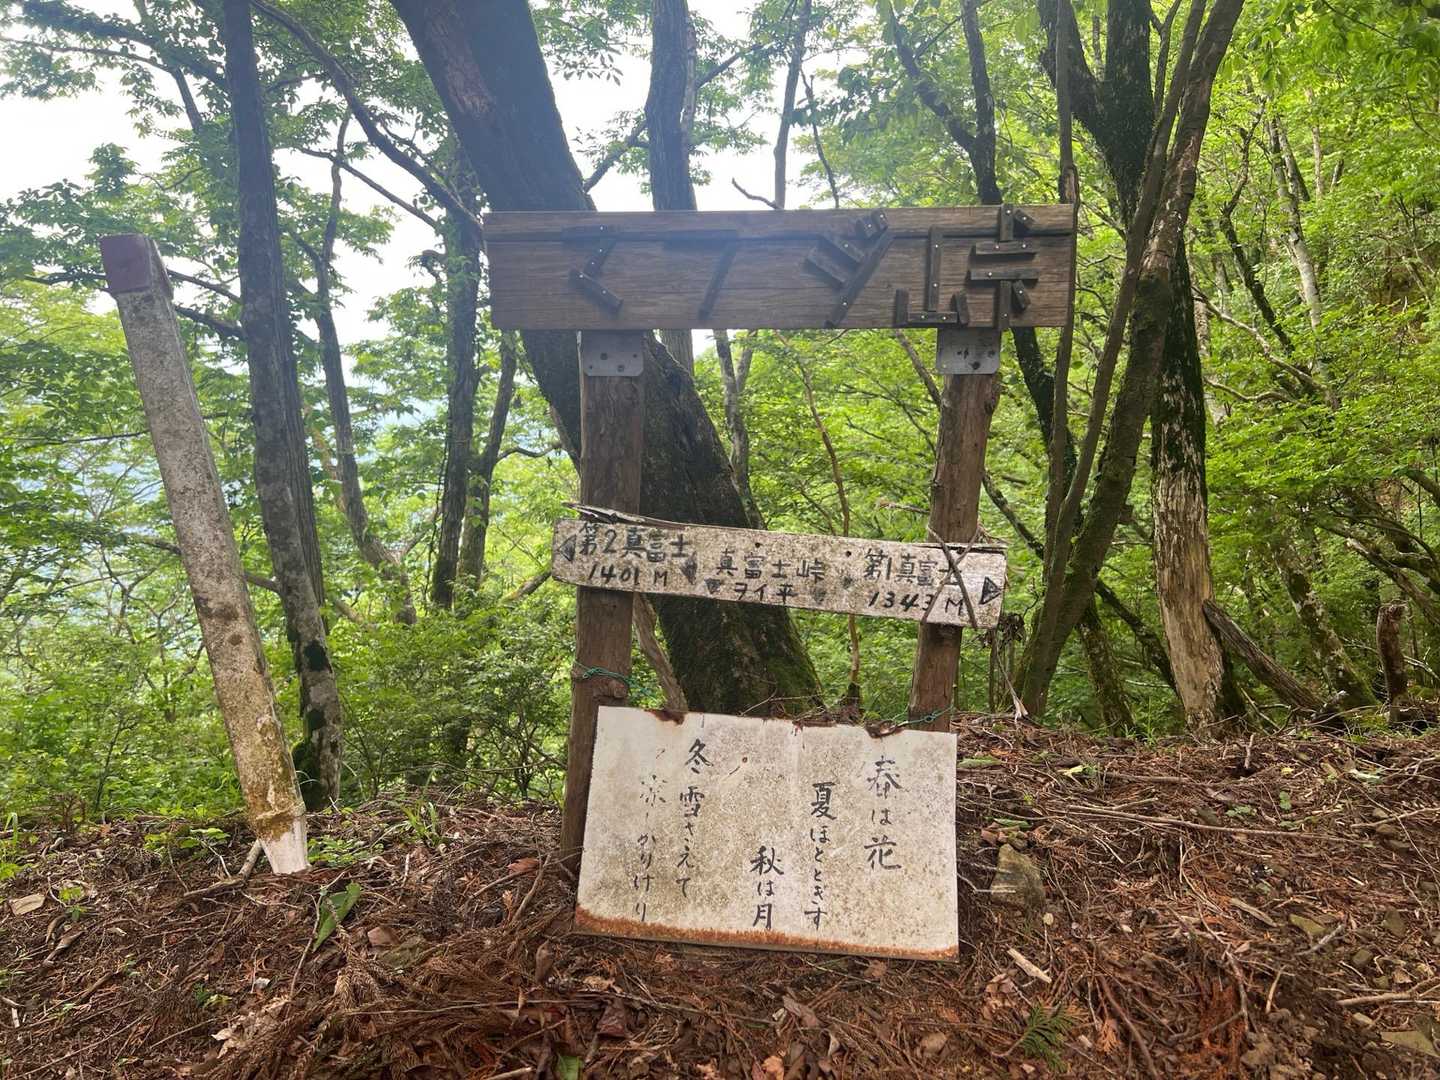 マフジ峠
第2真富士
1401M
真富士峠
ヲイ平
第1真富士
1343M
春は花
夏ほととぎす
秋は月
冬雪さえて
涼しかりけり